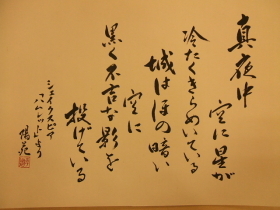 真夜中
空に星が
冷たくきらめいている
城はほの暗い
空に
黒く不吉な影を
投げている
シェイクスピア
ハムレットより